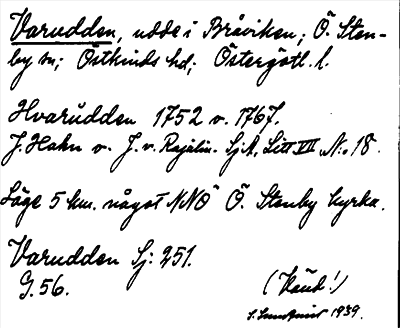 Varudden, udde i Bråviken; Ö. Sten-
by sn; Östkinds hd; Östergötl. l.
Hvarudden 1752 o. 1767.
J. Hahn o. J. v. Rajalin. Sj.A. Litt VII N:o 18.
Läge 5 km. något NNÖ Ö. Stenby kyrka.
Varudden Sj: 251.
G. 56.
1939.